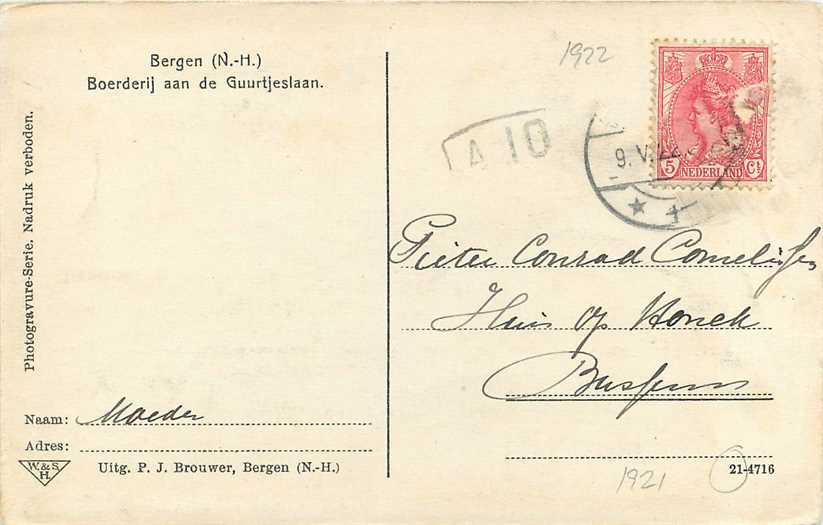 Bergen (N.-H.)
Boerderij aan de Guurtjeslaan.
Photogravure-Serie. Nadruk verboden.
Naam: Moeder
Adres:
W. & S.
H.
Uitg. P. J. Brouwer, Bergen (N.-H.)
1922
A 10
9.V.22
5 NEDERLAND Ct
Pieter Conrad
Huis op Honck
Bussum
1921
21-4716